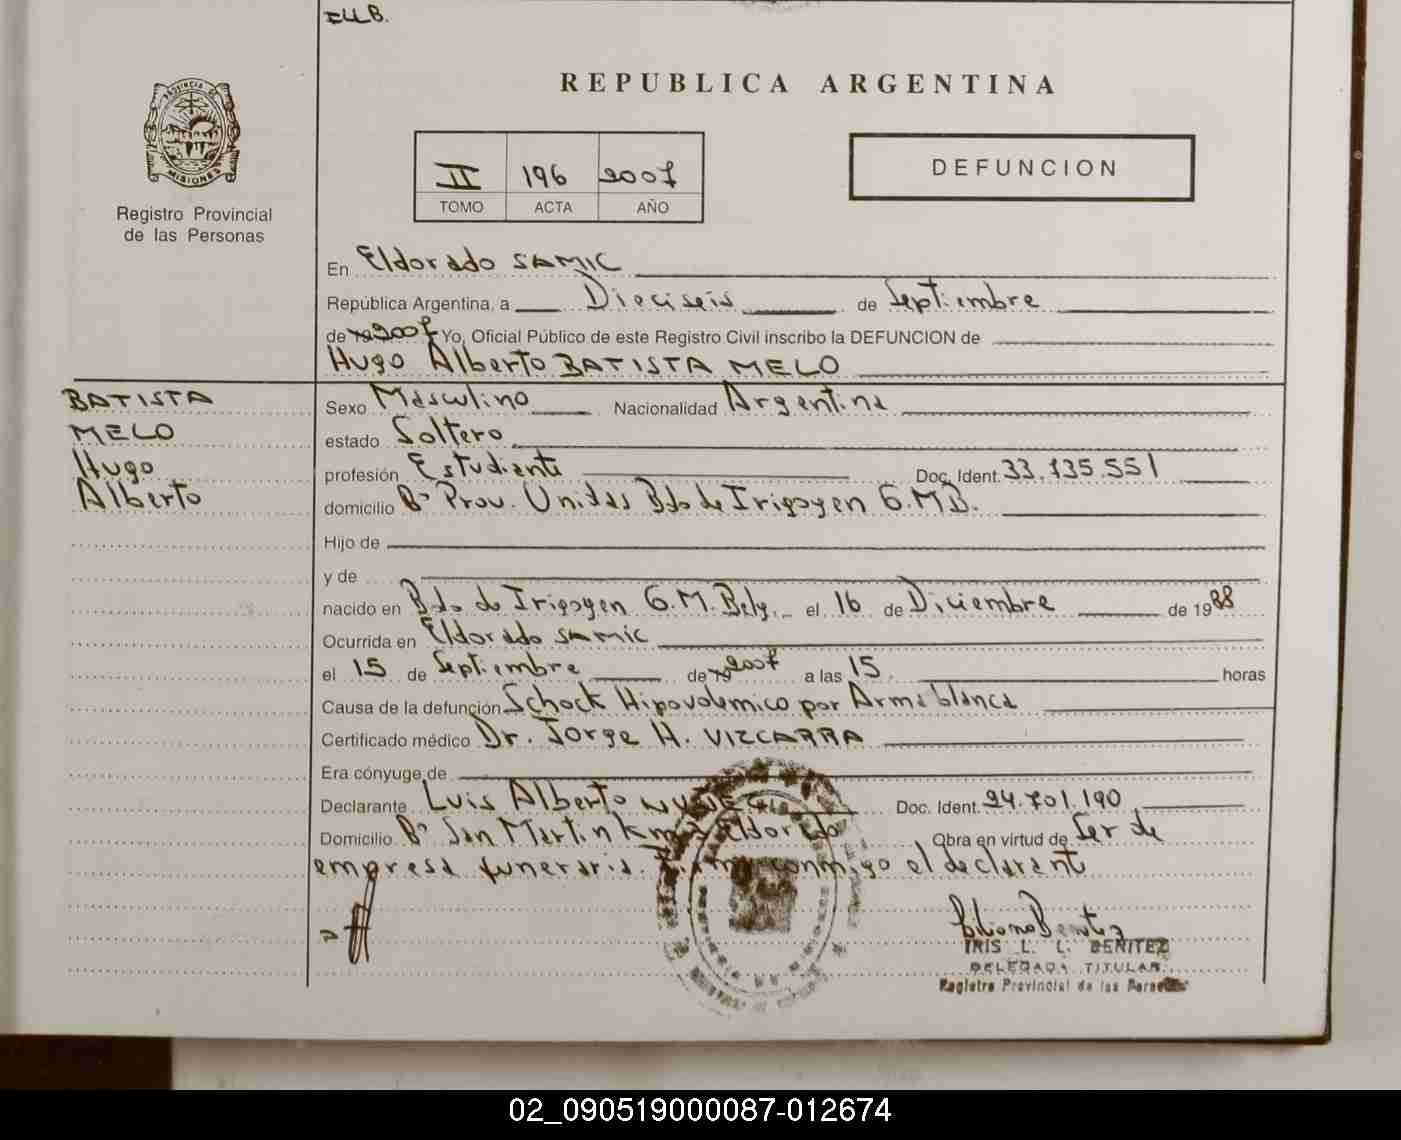 PROVINCIA DE
MISIONES
Registro Provincial
de las Personas
REPUBLICA ARGENTINA
II 196 2007
TOMO ACTA AÑO
DEFUNCION
En Eldorado SAMIC
República Argentina, a Dieciseis de Septiembre
de 19 2007 Yo, Oficial Público de este Registro Civil inscribo la DEFUNCION de
Hugo Alberto BATISTA MELO
BATISTA
MELO
Hugo
Alberto
Sexo Masculino Nacionalidad Argentina
estado Soltero
profesión Estudiante Doc. Ident. 33.135.551
domicilio Bº Prov. Unidas Bdo de Irigoyen G.M.B.
Hijo de
y de
nacido en Bdo de Irigoyen G.M. Belg. el 16 de Diciembre de 1988
Ocurrida en Eldorado SAMIC
el 15 de Septiembre de 19 2007 a las 15 horas
Causa de la defunción Schock Hipovolemico por Arma blanca
Certificado médico Dr. Jorge H. VIZCARRA
Era cónyuge de
Declarante Luis Alberto Doc. Ident. 24.701.190
Domicilio Bº San Martin Km Eldorado Obra en virtud de Ser de
empresa funeraria. Firma conmigo el declarante
IRIS L. L. BENITEZ
DELEGADA TITULAR
Registro Provincial de las Personas
02_090519000087-012674